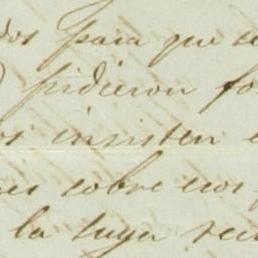 dos para que se
pidieron fo
os insisten e
es sobre esos
la tuya rec